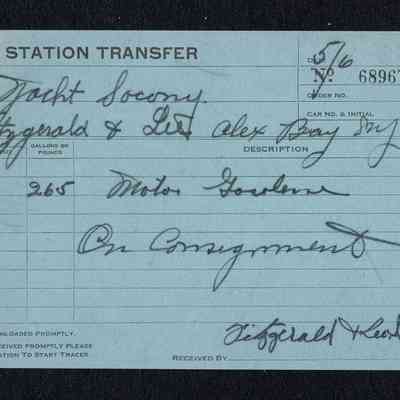 STATION TRANSFER
5/6
No. 68967
Yacht Socony.
ORDER NO.
CAR NO. & INITIAL
Fitzgerald & Lee Alex Bay NY
GALLONS OR
POUNDS
DESCRIPTION
265 Motor Gasolene
On Consignment
NLOADED PROMPTLY.
CEIVED PROMPTLY PLEASE
ATION TO START TRACER
Fitzgerald & Lee
RECEIVED BY